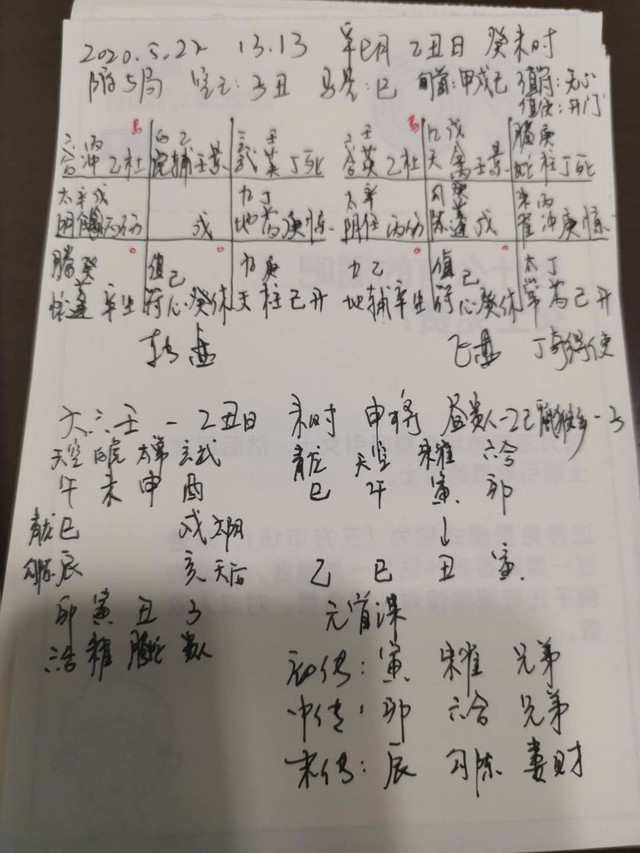 2020.5.22 13.13 辛巳月 乙丑日 癸未时
阳5局 空亡:子丑 马星:巳 旬首:甲戌己 值符:天心
值使:开门
六 丙 白 乙 玄 壬 六 壬 九 戊 螣 庚
合 冲 乙杜 虎 辅 壬景 武 英 丁死 合 英 乙杜 天 禽 壬景 蛇 柱 丁死
太 辛戊 九 丁 太 辛 勾 癸 朱 丙
阴 丙伤 戊 地 芮 庚惊 阴 任 丙伤 陈 蓬 戊 雀 冲 庚惊
螣 癸 值 己 九 庚 九 乙 值 己 太 丁
蛇 蓬 辛生 符 心 癸休 天 柱 己开 地 辅 辛生 符 心 癸休 常 芮 己开
转盘 飞盘 丁奇得使
大六壬 - 乙丑日 未时 申将
天空 白虎 太常 玄武 青龙 天空 朱雀 六合
午 未 申 酉 巳 午 寅 卯
青龙 巳 戌 太阴 ↓
勾陈 辰 亥 天后 乙 巳 丑 寅
卯 寅 丑 子 元首课
六合 朱雀 螣蛇 贵人
初传: 寅 朱雀 兄弟
中传: 卯 六合 兄弟
末传: 辰 勾陈 妻财